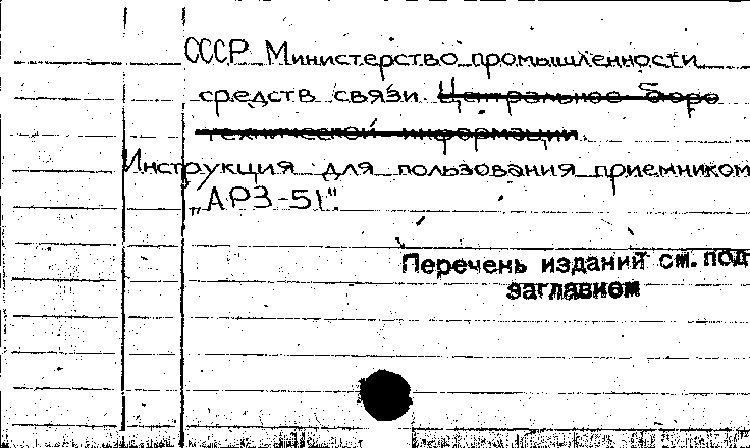 СССР Министерство промышленности
средств связи Центральное бюро
технической информации.
Инструкция для пользования приемником
„АРЗ-51".
Перечень изданий см. под
заглавием